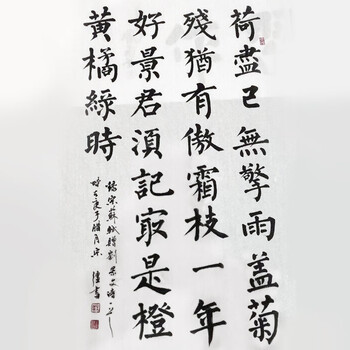 荷盡已無擎雨盖菊
殘猶有傲霜枝一年
好景君須記寂是橙
黃橘綠時
錄宋蘇軾贈劉景文詩一首